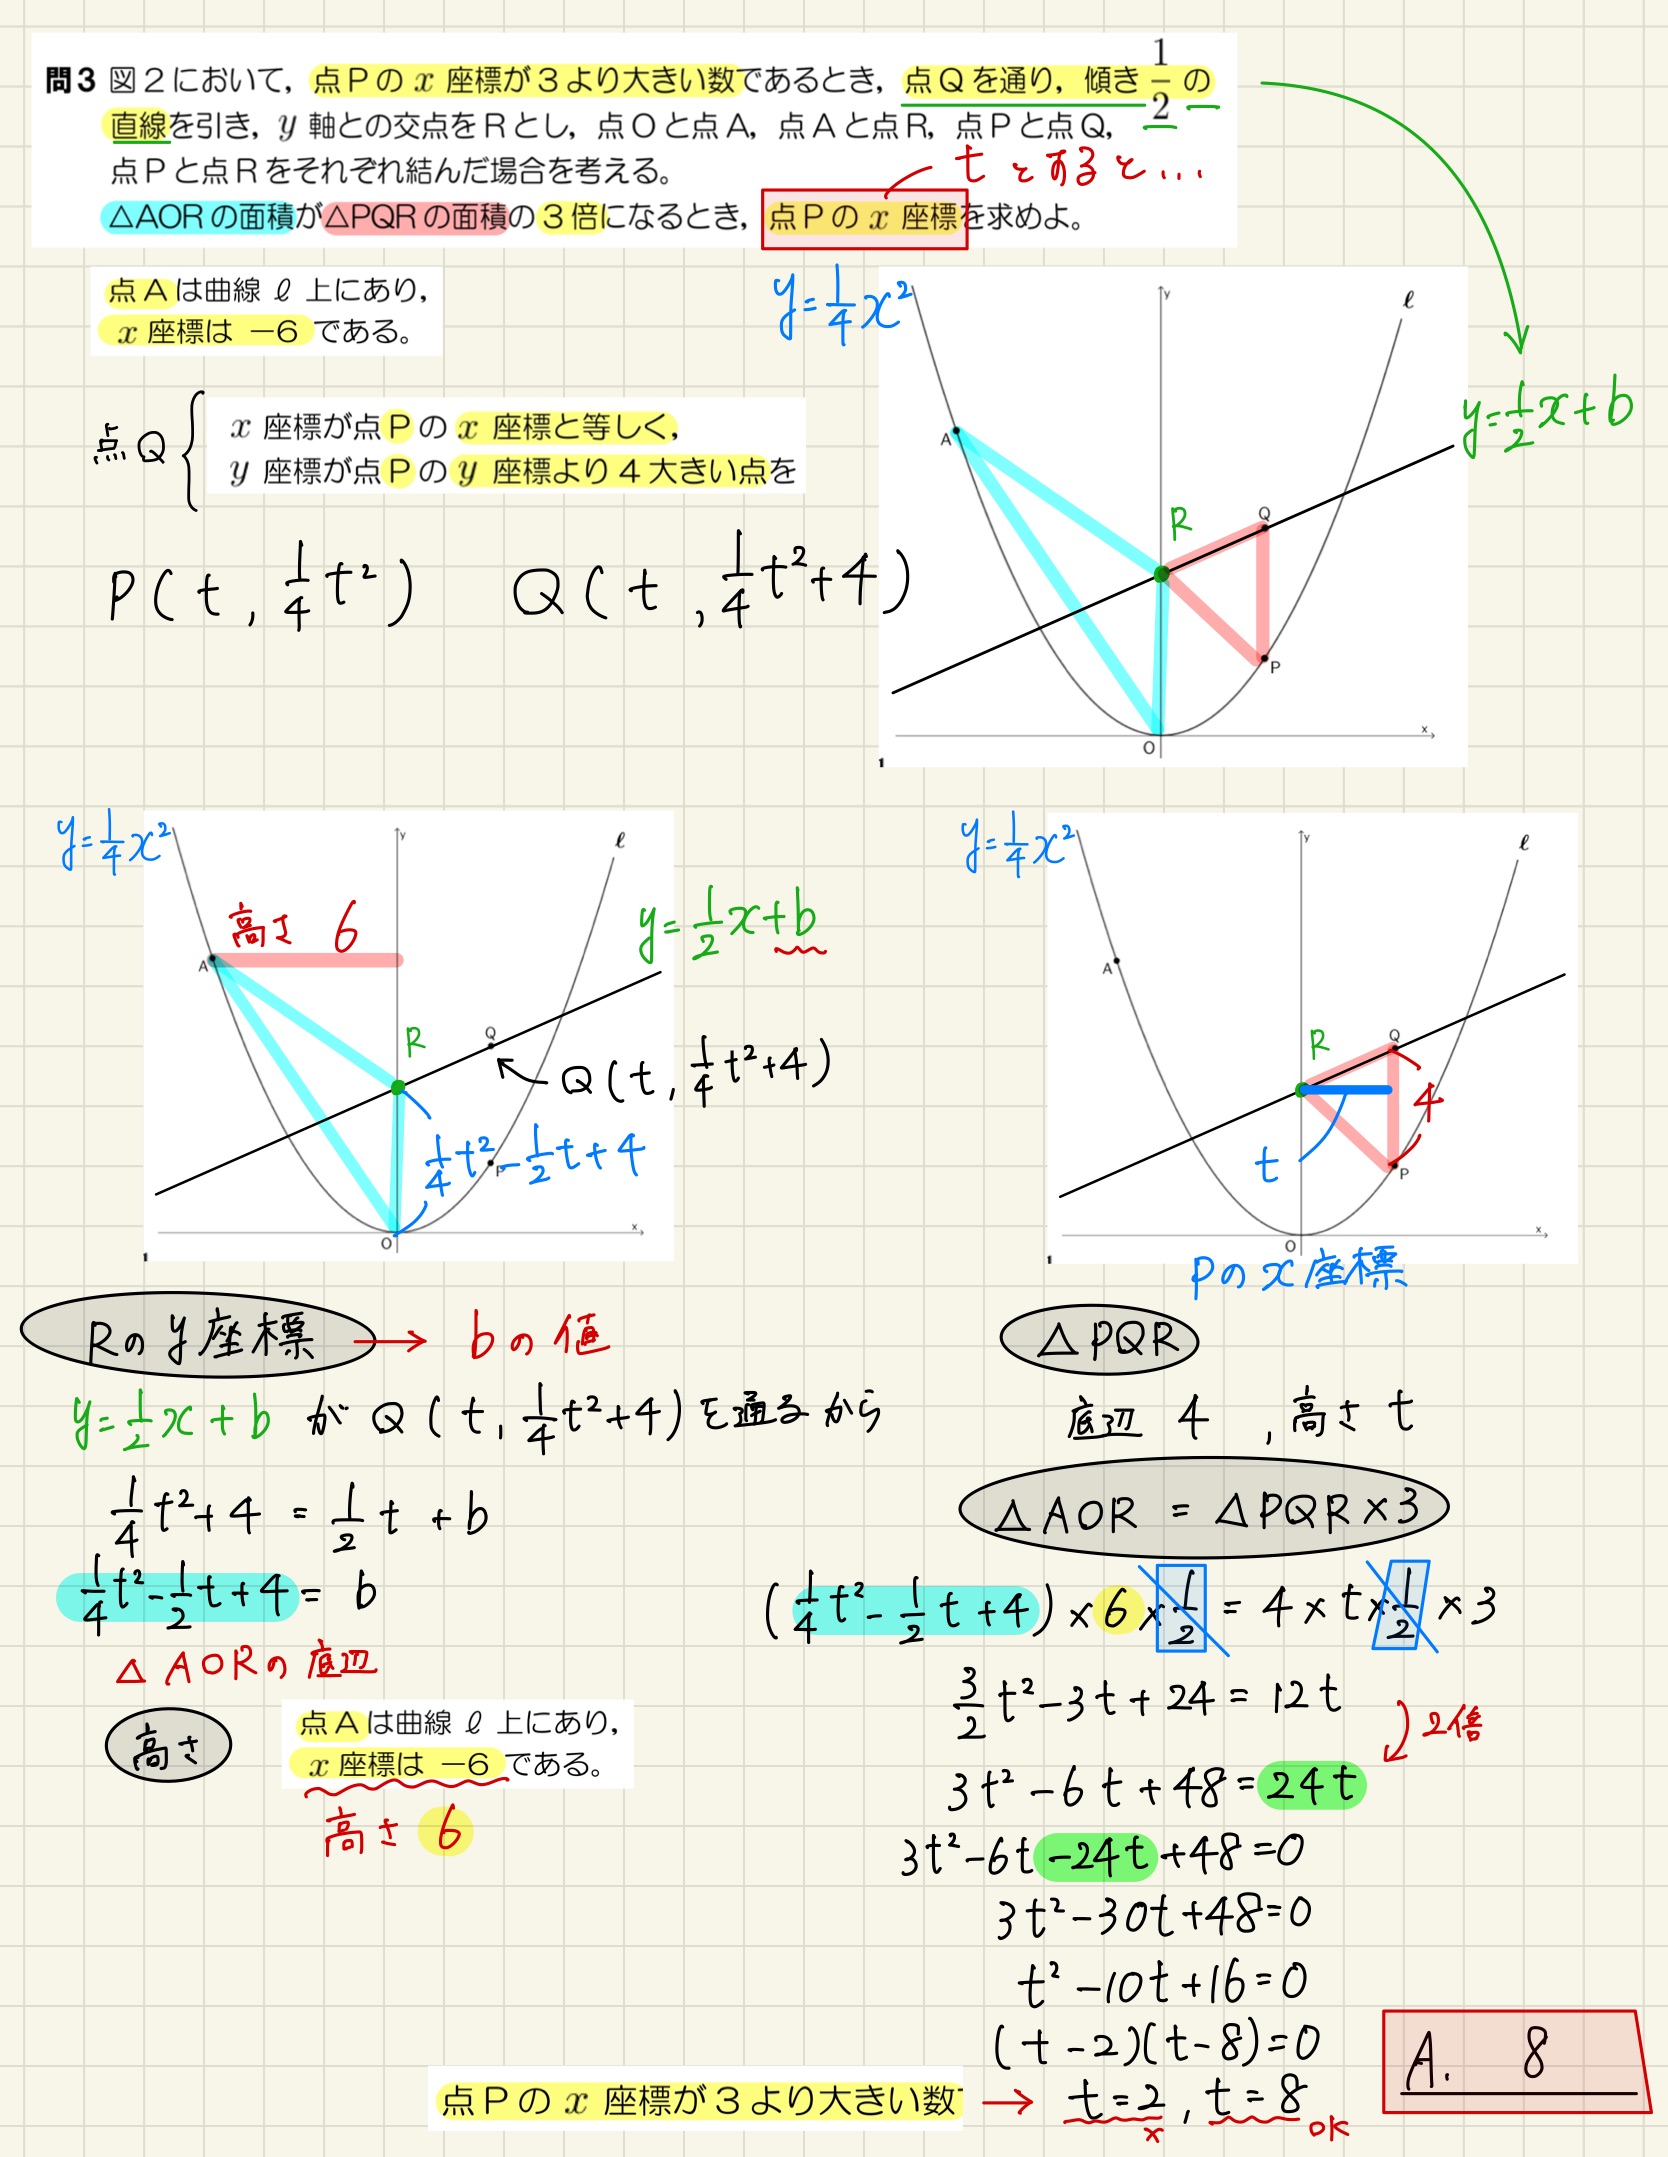 問3 図2において，点Pの x 座標が3より大きい数であるとき，点Qを通り，傾き 1/2 の
直線を引き，y 軸との交点をRとし，点Oと点A，点Aと点R，点Pと点Q，
点Pと点Rをそれぞれ結んだ場合を考える。
tとすると…
△AORの面積が△PQRの面積の3倍になるとき，点Pの x 座標を求めよ。
点Aは曲線 ℓ 上にあり，
x 座標は −6 である。
y=1/4x²
y
ℓ
y=1/2x+b
A
R
Q
P
O
x
1
点Q
x 座標が点Pの x 座標と等しく，
y 座標が点Pの y 座標より4大きい点を
P(t, 1/4t²) Q(t, 1/4t²+4)
y=1/4x²
y
ℓ
高さ 6
A
y=1/2x+b
R
Q
Q(t, 1/4t²+4)
1/4t²-1/2t+4
P
O
x
1
y=1/4x²
y
ℓ
A
R
Q
4
t
P
O
x
1
Pのx座標
Rのy座標 → bの値
y=1/2x+b が Q(t, 1/4t²+4)を通るから
1/4t²+4 = 1/2t+b
1/4t²-1/2t+4 = b
△AORの底辺
高さ
点Aは曲線 ℓ 上にあり，
x 座標は −6 である。
高さ 6
△PQR
底辺 4 , 高さ t
△AOR = △PQR×3
(1/4t²-1/2t+4)×6×1/2 = 4×t×1/2×3
3/2t²-3t+24 = 12t
2倍
3t²-6t+48=24t
3t²-6t-24t+48=0
3t²-30t+48=0
t²-10t+16=0
(t-2)(t-8)=0
点Pの x 座標が3より大きい数 → t=2, t=8
× OK
A. 8